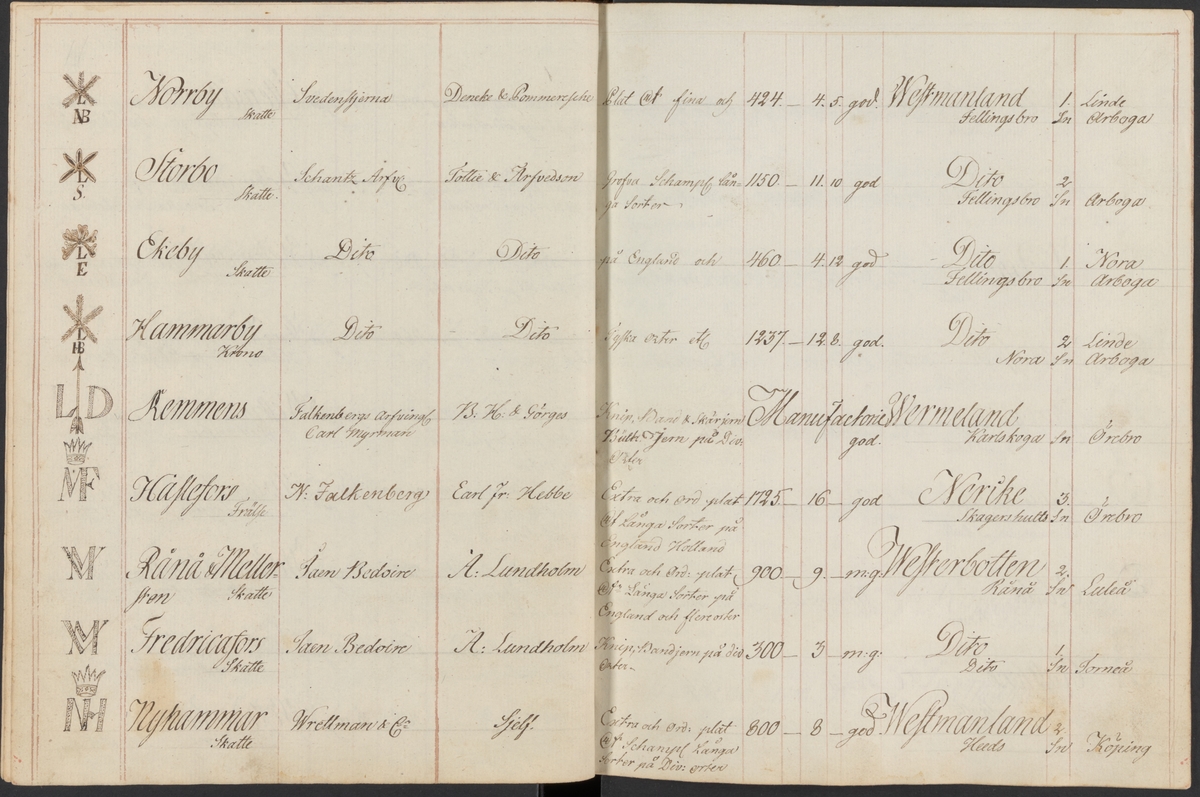 L NB Norrby Svedenstjerna Deneke & Pommeresche Plat @t fina och 424 — 4. 5. god. Westmanland 1. Linde
Skatte Fellingsbro Sn Arboga
L S. Storbo Schantz Arfv Tottie & Arfvedson Grofva Schampl lån= 1150 — 11. 10 god Dito 2
Skatte. ga Sorter Fellingsbro Sn Arboga.
L E Ekeby Dito Dito på England och 460 — 4. 12 god Dito 1. Nora
Skatte Fellingsbro Sn Arboga
L HB Hammarby Dito Dito Tyska orter etc 1237. — 12. 8. god. Dito 2 Linde
Krono Nora Sn Arboga
L D Remmens Falkenbergs Arfvingl B. H. & Görges Knip, Band & Skärjern Manufactorie Wermeland
Carl Myrman Jern på Div: god. Karlskoga Sn Örebro
Orter
MF Hasselfors N: Falkenberg Carl Fr: Hebbe Extra och ord plat 1725 — 16 — god Nerike 3.
Frälse @t Långa Sorter på Skagershults Sn Örebro
England Holland
Rånå & Meller= Saen Bedoire A: Lundholm Extra och Ord: plat 900 — 9. — m:g: Westerbotten 2.
sten Skatte @t Långa Sorter på Rånå Sn Luleå
England och flere orter
Fredricafors Saen Bedoire A: Lundholm Knip, Bandjern på div 300 — 3 — m:g: Dito 1.
Skatte Orter Dito Sn Torneå
NH Nyhammar Wrettman & Co Sjelf. Extra och Ord: plat 800 — 8 — god Westmanland 2.
Skatte @t Schampl Långa Heds Sn Köping
Sorter på Div: orter